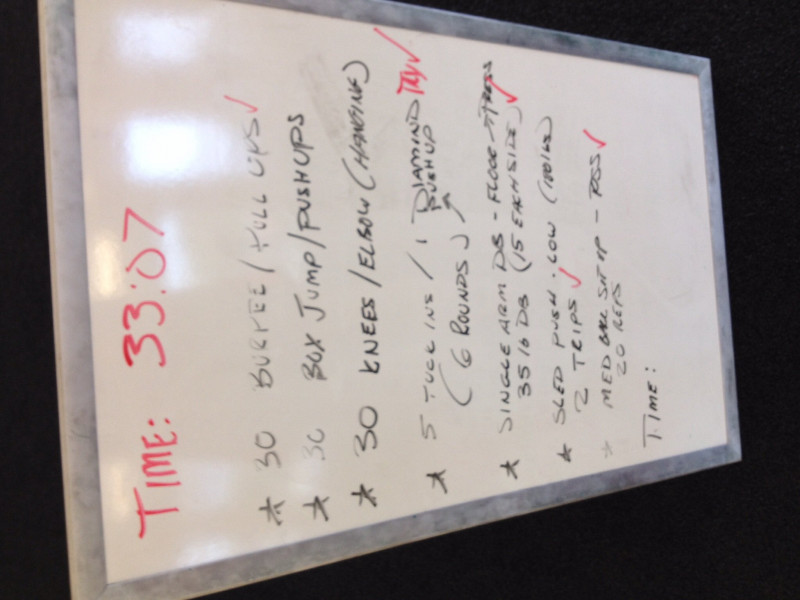 TIME: 33:07
* 30 BURPEE / PULL UPS ✓
* 30 BOX JUMP / PUSHUPS
* 30 KNEES / ELBOW (HANGING)
* 5 TUCK INS / 1 DIAMIND PUSHUP ✓
(6 ROUNDS)
* SINGLE ARM DB - FLOOR PRESS
35 lb DB (15 EACH SIDE) ✓
* SLED PUSH - LOW (180 lbs)
2 TRIPS ✓
* MED BALL SIT UP - TOSS ✓
20 REPS
TIME: